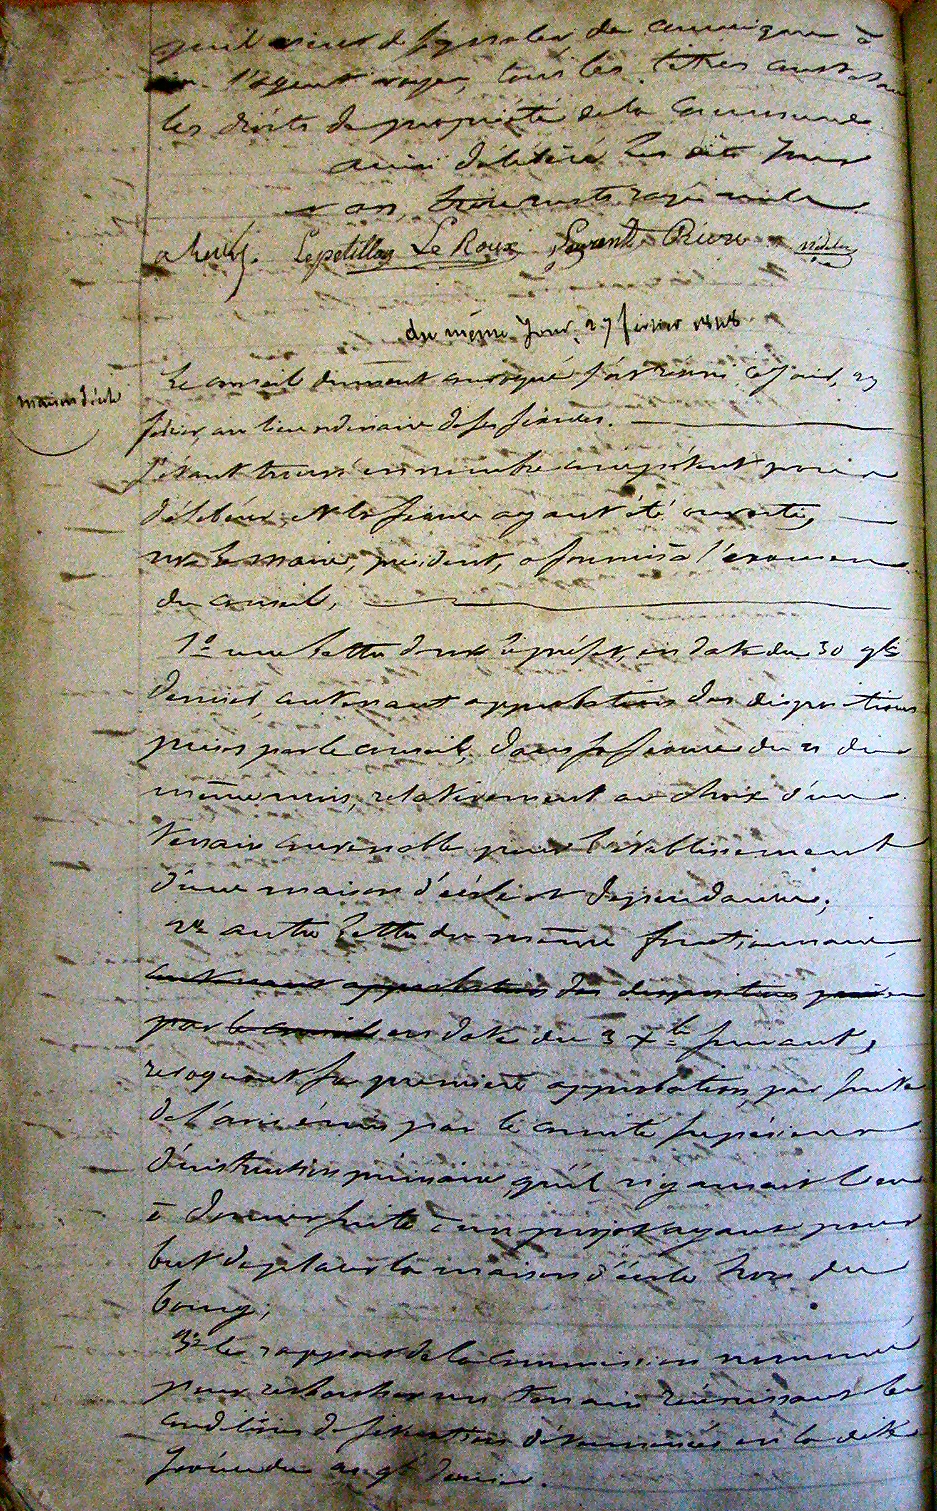 qu'il vient de signaler de communiquer à
l'agent voyer, tous les titres constatant
les droits de propriété de la Commune
ainsi délibéré les dits jour
et an, trois mots rayés nuls.
Lepetillon Le Roux Laurent Prieur
du même Jour, 27 février 1848
maison d'école
Le conseil dument convoqué s'est réuni, ce jour, 27
février, au lieu ordinaire de ses séances.
S'étant trouvé en nombre compétent pour
délibérer, et la séance ayant été ouverte,
mr le maire, président, a soumis à l'examen
du conseil,
1º une lettre de mr le préfet, en date du 30 9bre
dernier, contenant approbation des dispositions
prises par le conseil, dans sa séance du 21 du
même mois, relativement au choix d'un
terrain convenable pour l'établissement
d'une maison d'école et dépendances;
2º autre lettre du même fonctionnaire
contenant approbation des dispositions prises
par le conseil en date du 3 Xbre suivant,
révoquant sa première approbation, par suite
de l'avis émis par le comité supérieur
d'instruction primaire, qu'il n'y aurait lieu
à donner suite à un projet ayant pour
but de placer la maison d'école hors du
bourg;
3º le rapport de la Commission nommée
pour rechercher un terrain réunissant les
conditions de situation déterminées en la dite
séance du 21 9bre dernier.